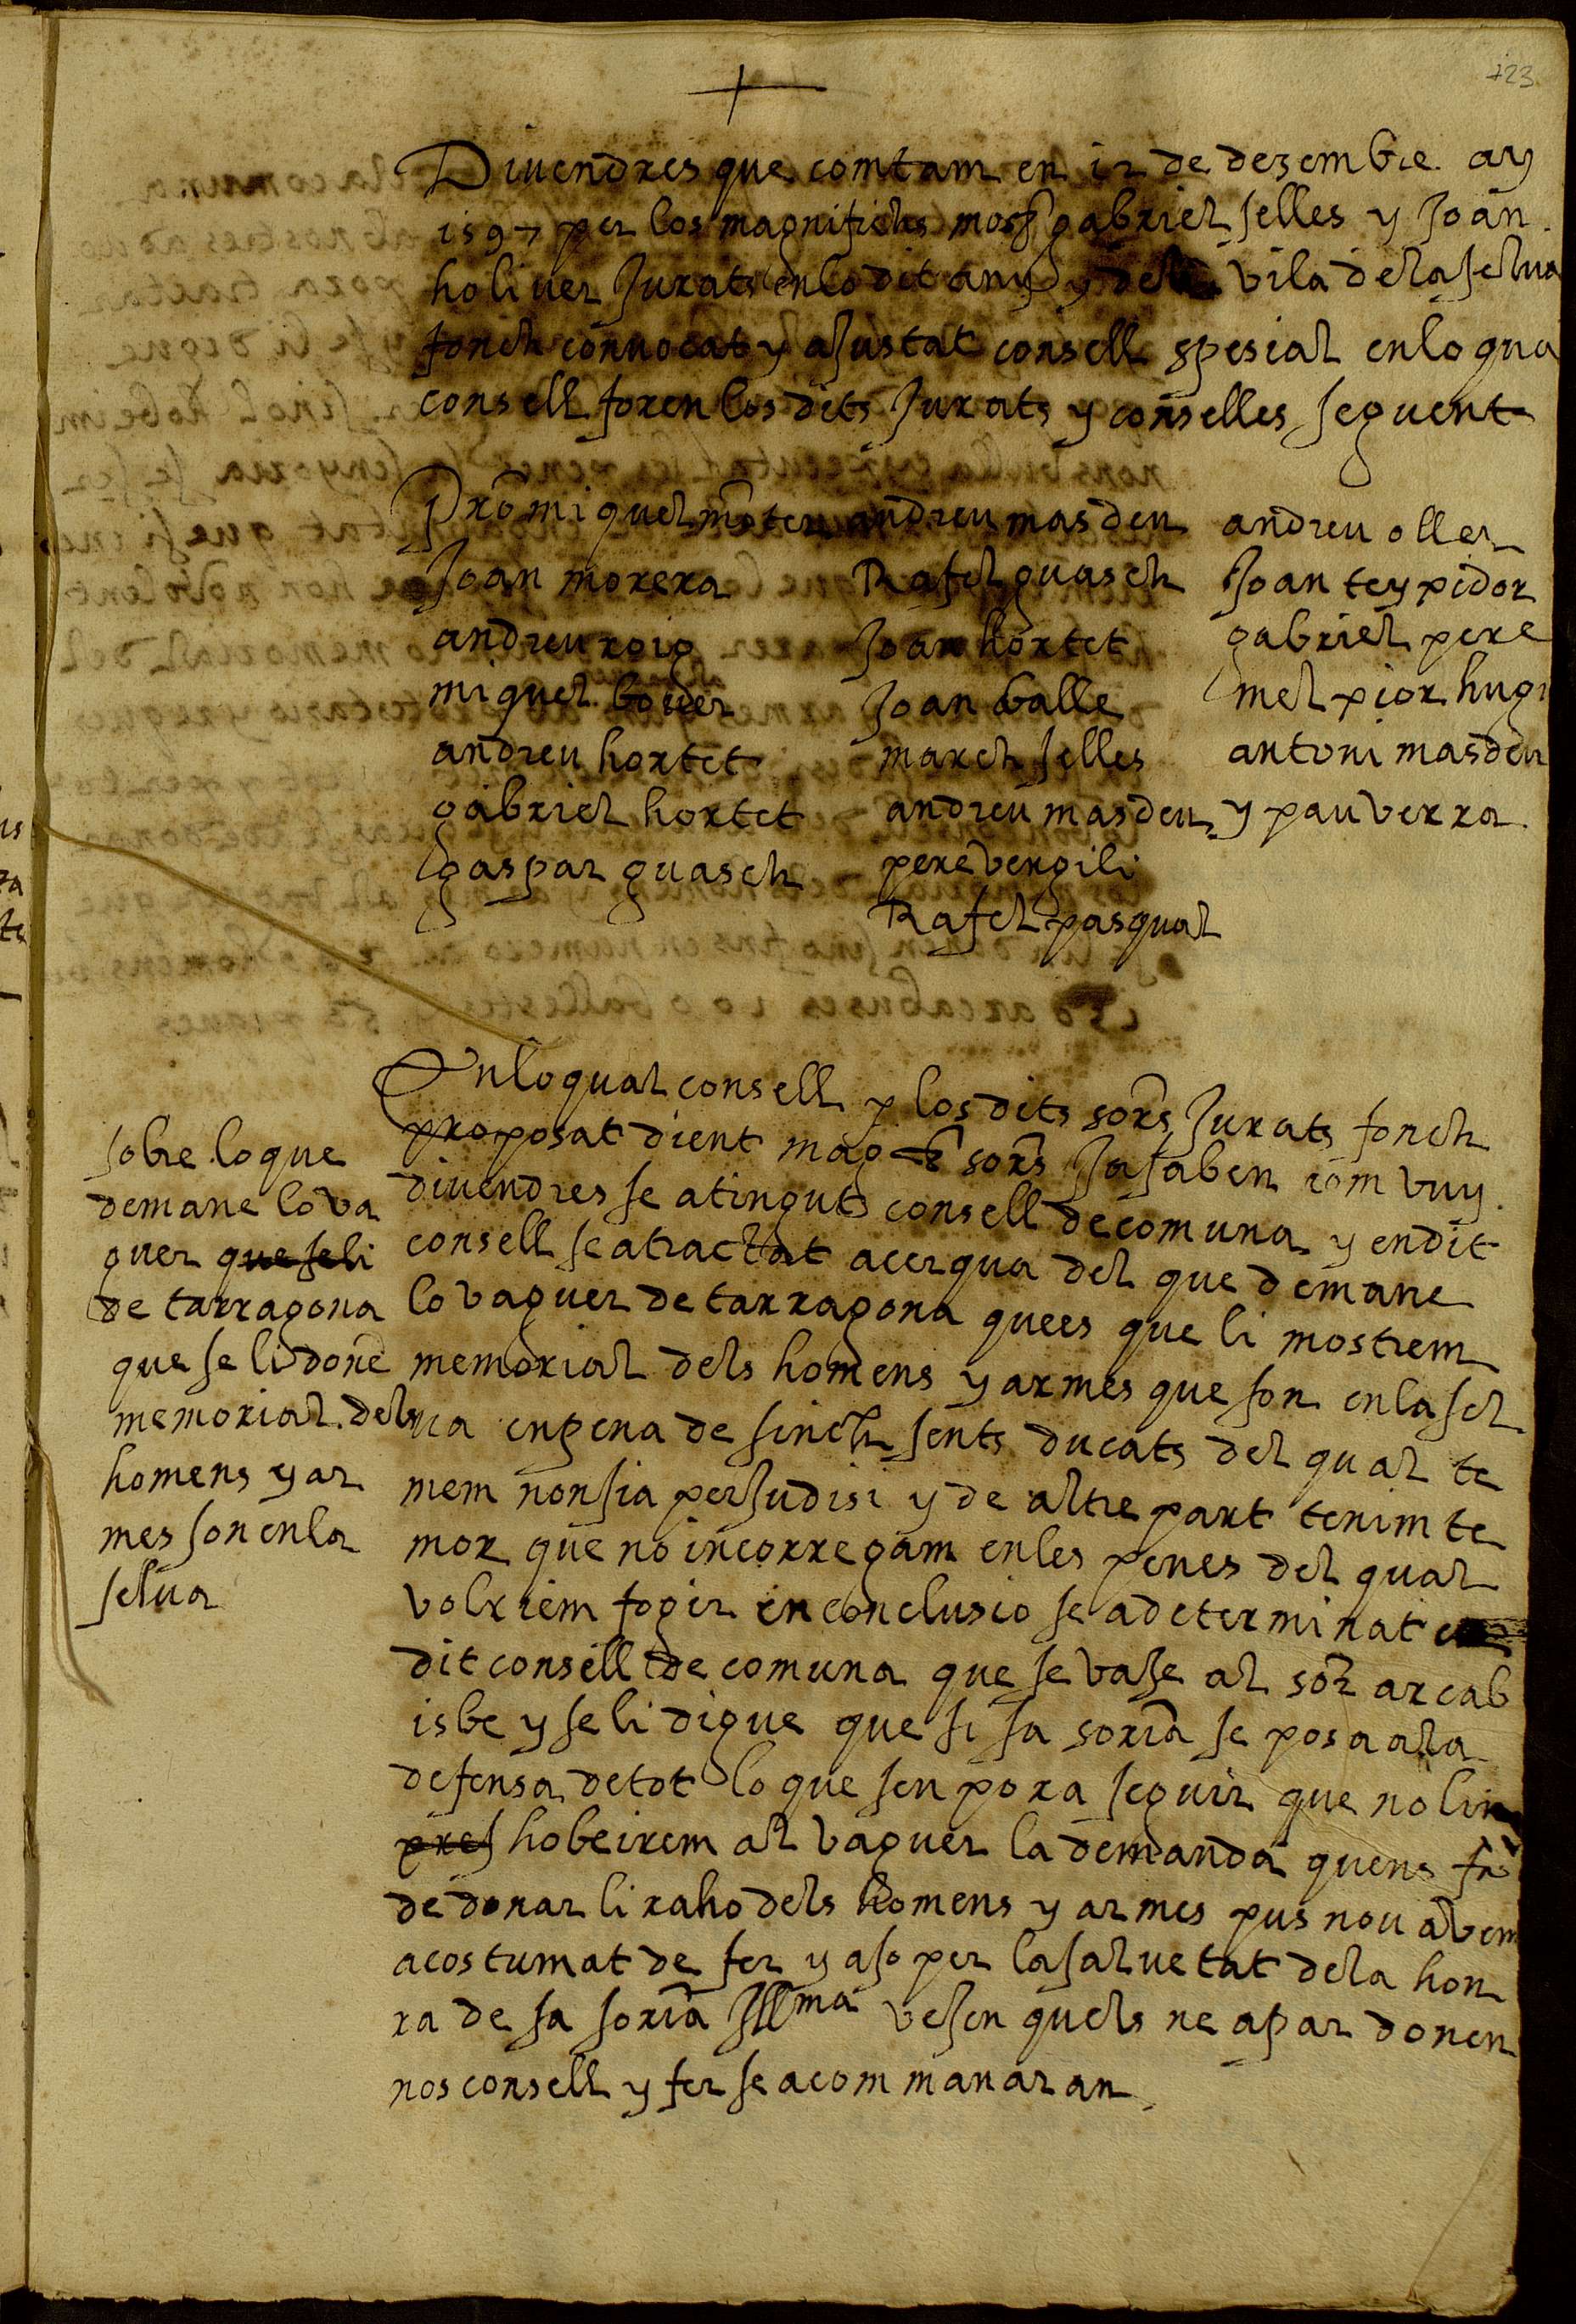 123
Divendres que comtam en 12 de dezembre any
1597 per los magnifichs moss gabriel selles y Joan
holiver Jurats en lo dit any y de la vila de la selva
fonch convocat y ajustat consell spesial en lo qua
consell foren los dits Jurats y conselles seguent
Pro miquel mõter andreu masdeu andreu oller
Joan morera Rafel guasch Joan teypidor
andreu roig Joan hortet gabriel pere
miquel bover Joan balle melpior hugi
andreu hortet march selles antoni masdeu
gabriel hortet andreu masdeu y pau verra
gaspar guasch pere vergili
Rafel pasqual
En lo qual consell p los dits sors Jurats fonch
proposat dient mag sors Ja saben com vuy
divendres se a tingut consell de comuna y en dit
consell se a tractat acerqua del que demane
lo vaguer de tarragona quees que li mostrem
memorial dels homens y armes que son en la sel
va en pena de sinch sents ducats del qual te
mem non sia perjudisi y de altre part tenim te
mor que no incorregam en les penes del qual
volriem fogir en conclusio se a determinat
dit consell de comuna que se vaje al sor arcab
isbe y se li digue que si sa soria se posa a la
defensa de tot lo que sen pora seguir que no lin
pres hobeirem al vaguer la demanda quens fa
de donar li raho dels homens y armes pus nou avem
acostumat de fer y aso per la salvetat de la hon
ra de sa soria Illma vejen quels ne apar donen
nos consell y fer se a com manaran
sobre lo que
demane lo va
guer que se li
de tarragona
que se li done
memorial dels
homens y ar
mes son en la
selva